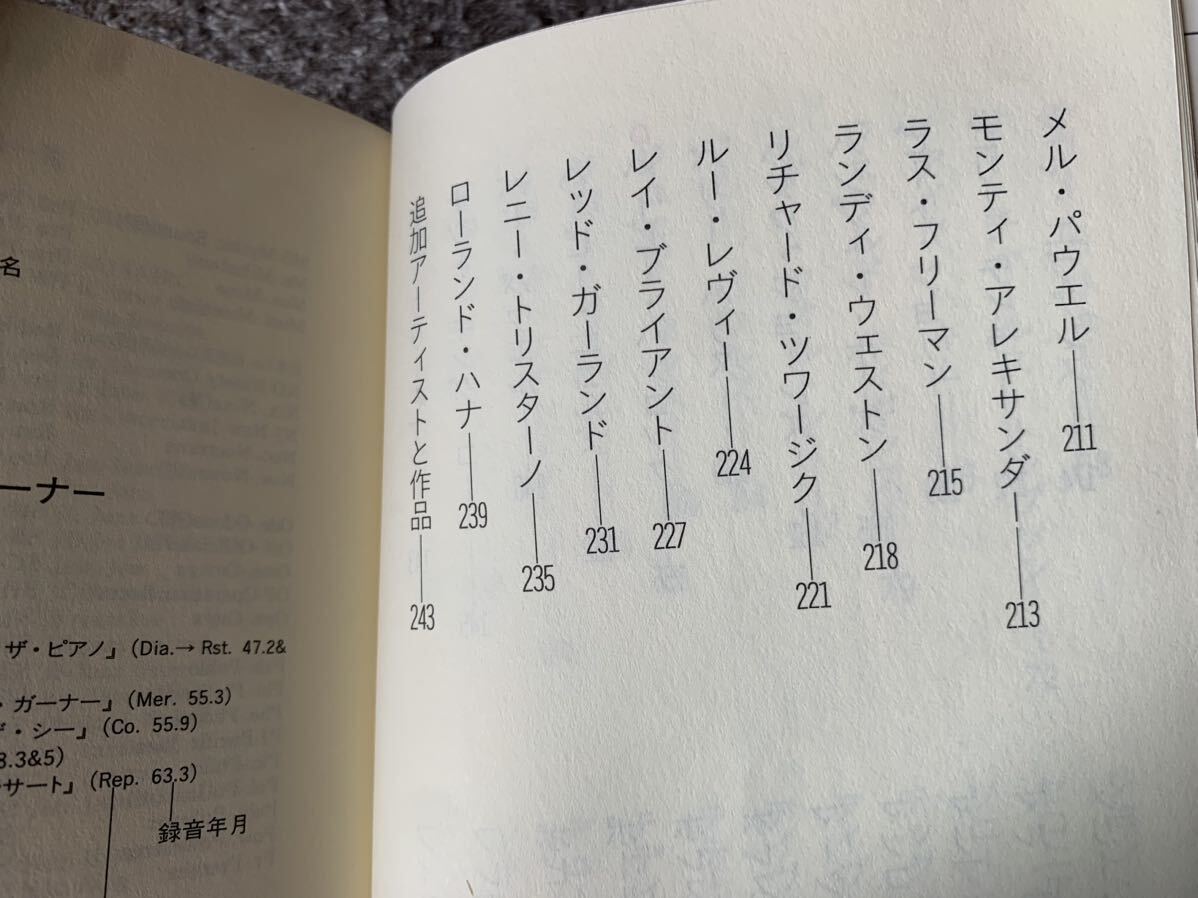 メル・パウエル——211
モンティ・アレキサンダー——213
ラス・フリーマン——215
ランディ・ウェストン——218
リチャード・ツワージク——221
ルー・レヴィー——224
レイ・ブライアント——227
レッド・ガーランド——231
レニー・トリスターノ——235
ローランド・ハナ——239
追加アーティストと作品——243
名
ーナー
ザ・ピアノ』(Dia.→ Rst. 47.2&
・ガーナー』(Mer. 55.3)
・シー』(Co. 55.9)
8.3&5)
サート』(Rep. 63.3)
録音年月